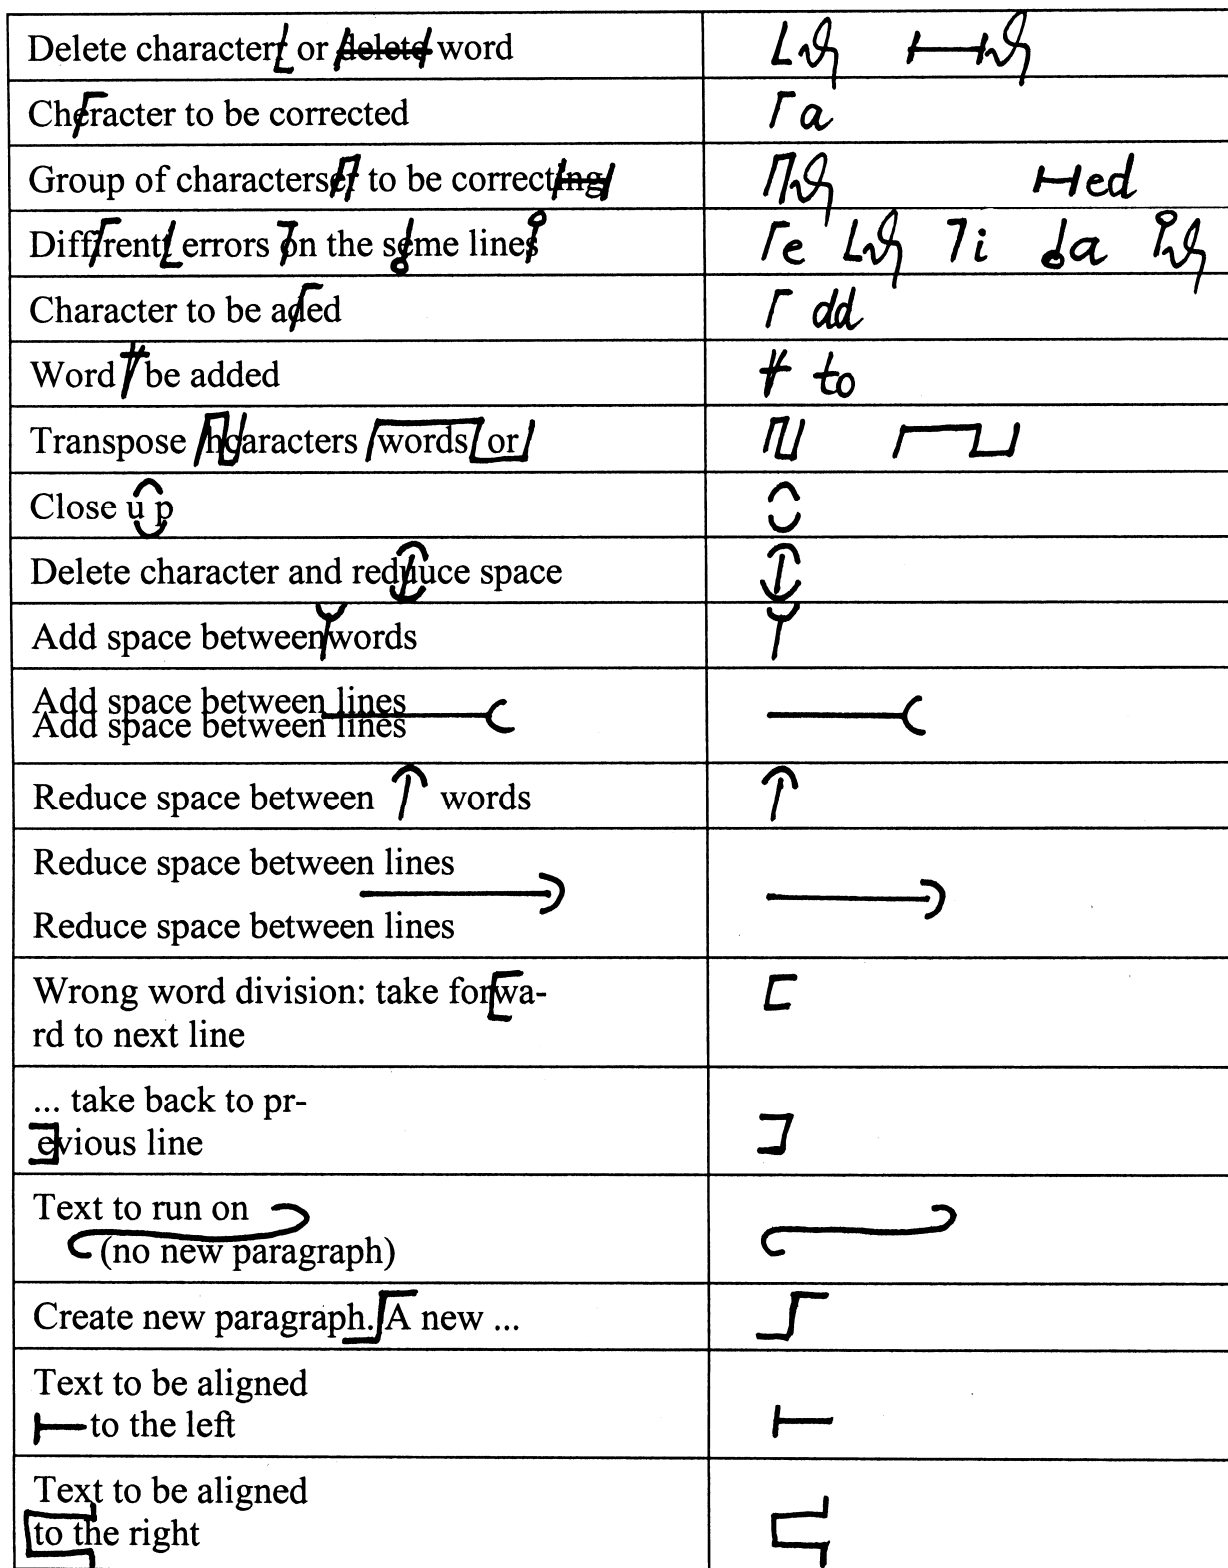 Delete character or delete word
Cheracter to be corrected
a
Group of characterser to be correcting
ed
Diffrent errors on the some lines
e i a
Character to be aded
dd
Word be added
to
Transpose hcaracters words or
Close u p
Delete character and reduuce space
Add space betweenwords
Add space between lines
Add space between lines
Reduce space between words
Reduce space between lines
Reduce space between lines
Wrong word division: take forwa-
rd to next line
... take back to pr-
evious line
Text to run on
(no new paragraph)
Create new paragraph. A new ...
Text to be aligned
to the left
Text to be aligned
to the right